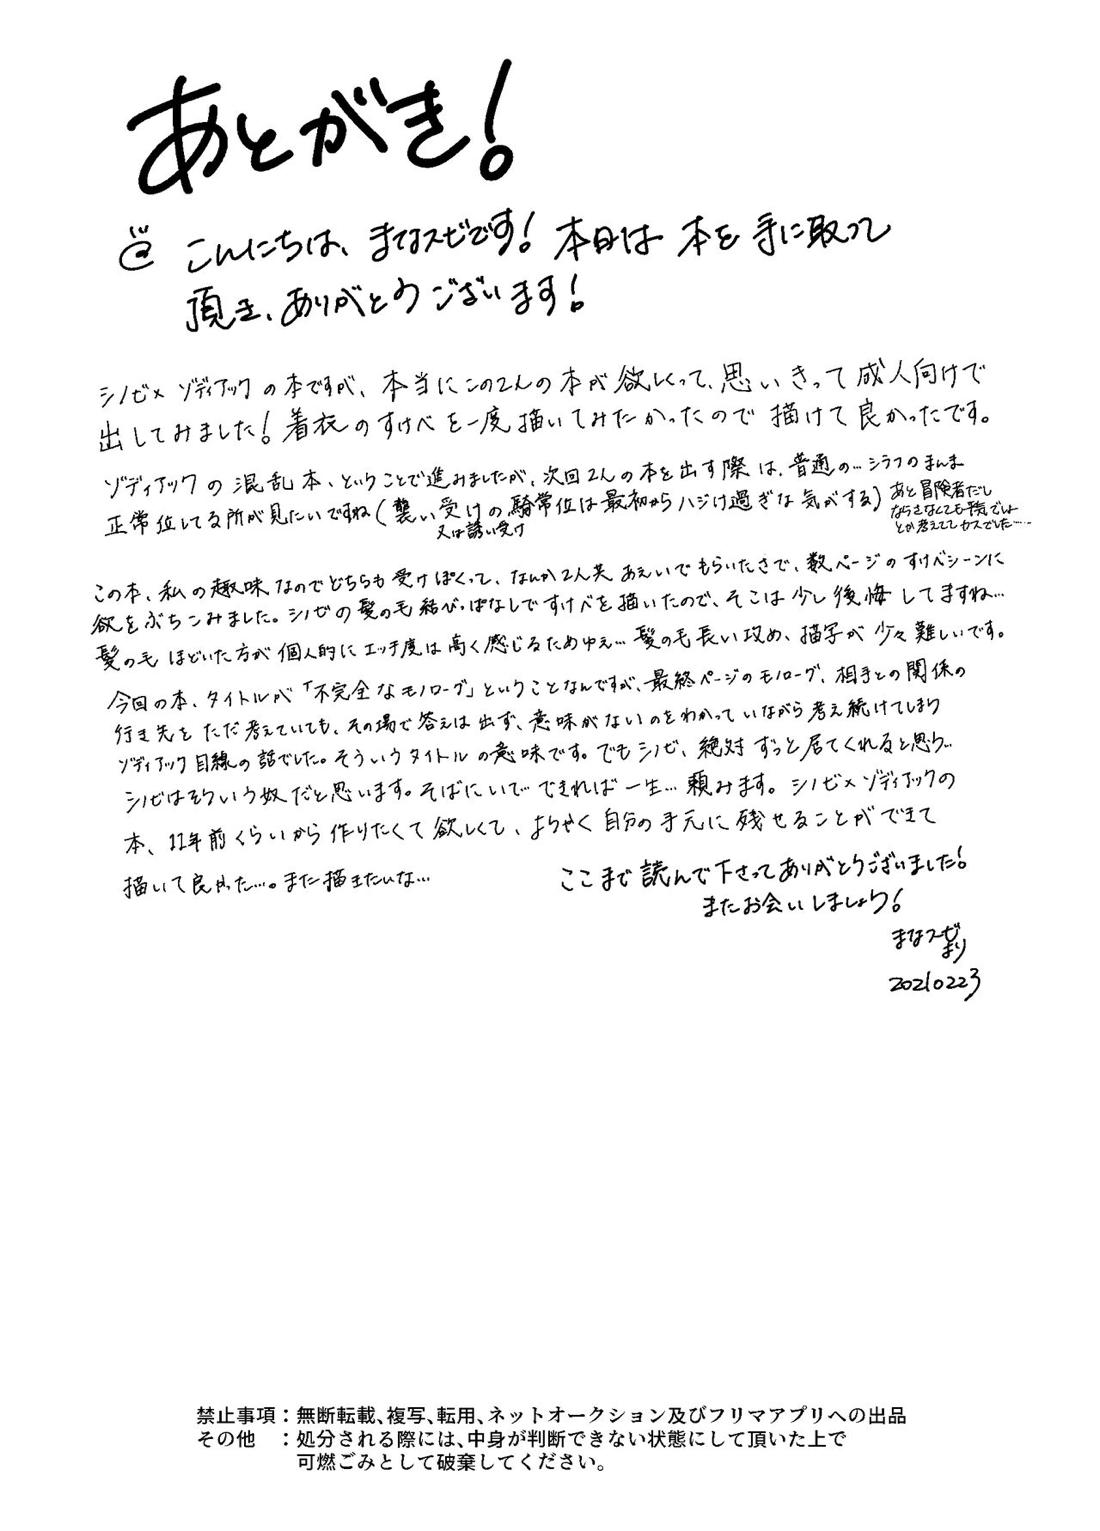 あとがき!
こんにちは、まなスピです! 本日は 本を 手に取って
頂き、ありがとうございます!
シノビ× ゾディアック の本ですが、本当に この2人の 本が 欲しくって、思いきって 成人向けで
出してみました! 着衣 のすけべ を一度 描いてみたかったので 描けて 良かったです。
ゾディアックの 混乱 本、ということで進みましたが、次回 2人 の本を 出す際 は、普通の… シラフのまんま
正常位してる所が見たいですね(襲い受けの騎常位は最初からハジけ過ぎな気がする)
又は誘い受け
あと冒険者だし
この本、私の趣味なのでどちらも受けぽくって、なんか2人共 あえいでもらいたさで、数ページのすけべシーンに
欲をぶちこみました。シノビの髪の毛結びっぱなしですけべを描いたので、そこは少し後悔してますね…
髪の毛 ほどいた方が 個人的に エッチ度は 高く感じるためゆえ… 髪の毛 長い攻め、描写が 少々難しいです。
今回の本、タイトルが「不完全なモノローグ」ということなんですが、最終ページのモノローグ、相手との関係の
行き先を ただ考えていても、その場で 答えは 出ず、意味がないのをわかっていながら考え続けてしまう
ゾディアック目線の話でした。そういうタイトルの意味です。でもシノビ、絶対 ずっと居てくれると思う…
シノビはそういう奴だと思います。そばにいて… できれば 一生… 頼みます。シノビ×ゾディアックの
本、11年前くらいから作りたくて欲しくて、ようやく自分の手元に残せることができて
描いて良かった…。また描きたいな…
ここまで読んで下さってありがとうございました!
またお会いしましょう!
20210223
禁止事項:無断転載、複写、転用、ネットオークション及びフリマアプリへの出品
その他 :処分される際には、中身が判断できない状態にして頂いた上で
可燃ごみとして破棄してください。